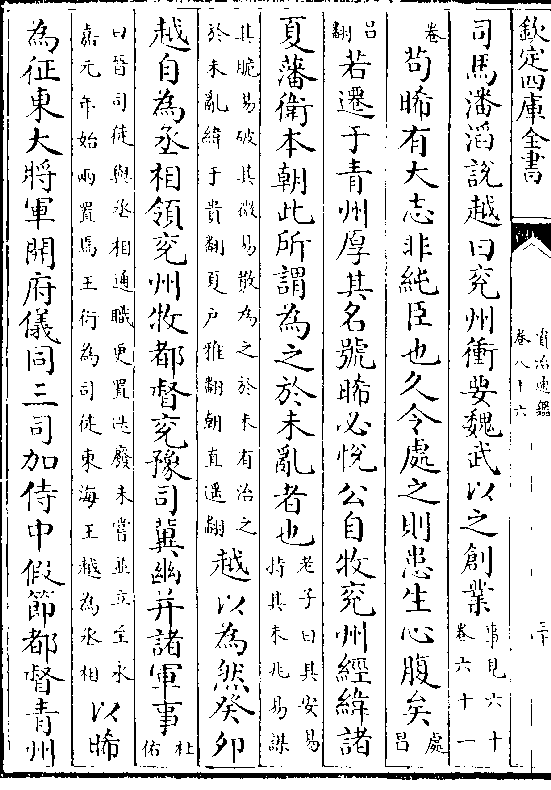 欽定四庫全書
資治通鑑
卷八十六
司馬潘滔說越曰兖州衝要魏武以之創業事見六十
卷六十一
卷苟晞有大志非純臣也久令處之則患生心腹矣處昌
呂翻若遷于青州厚其名號晞必悅公自牧兖州經緯諸
夏藩衛本朝此所謂為之於未亂者也老子曰其安易
持其未兆易謀
其脆易破其微易散為之於未有治之
於未亂緯于貴翻夏户雅翻朝直遥翻越以為然癸卯
越自為丞相領兖州牧都督兖豫司冀幽并諸軍事杜佑
曰晉司徒與丞相通職更置迭廢未嘗並立至永
嘉元年始兩置焉王衍為司徒東海王越為丞相以晞
為征東大將軍開府儀同三司加侍中假節都督青州